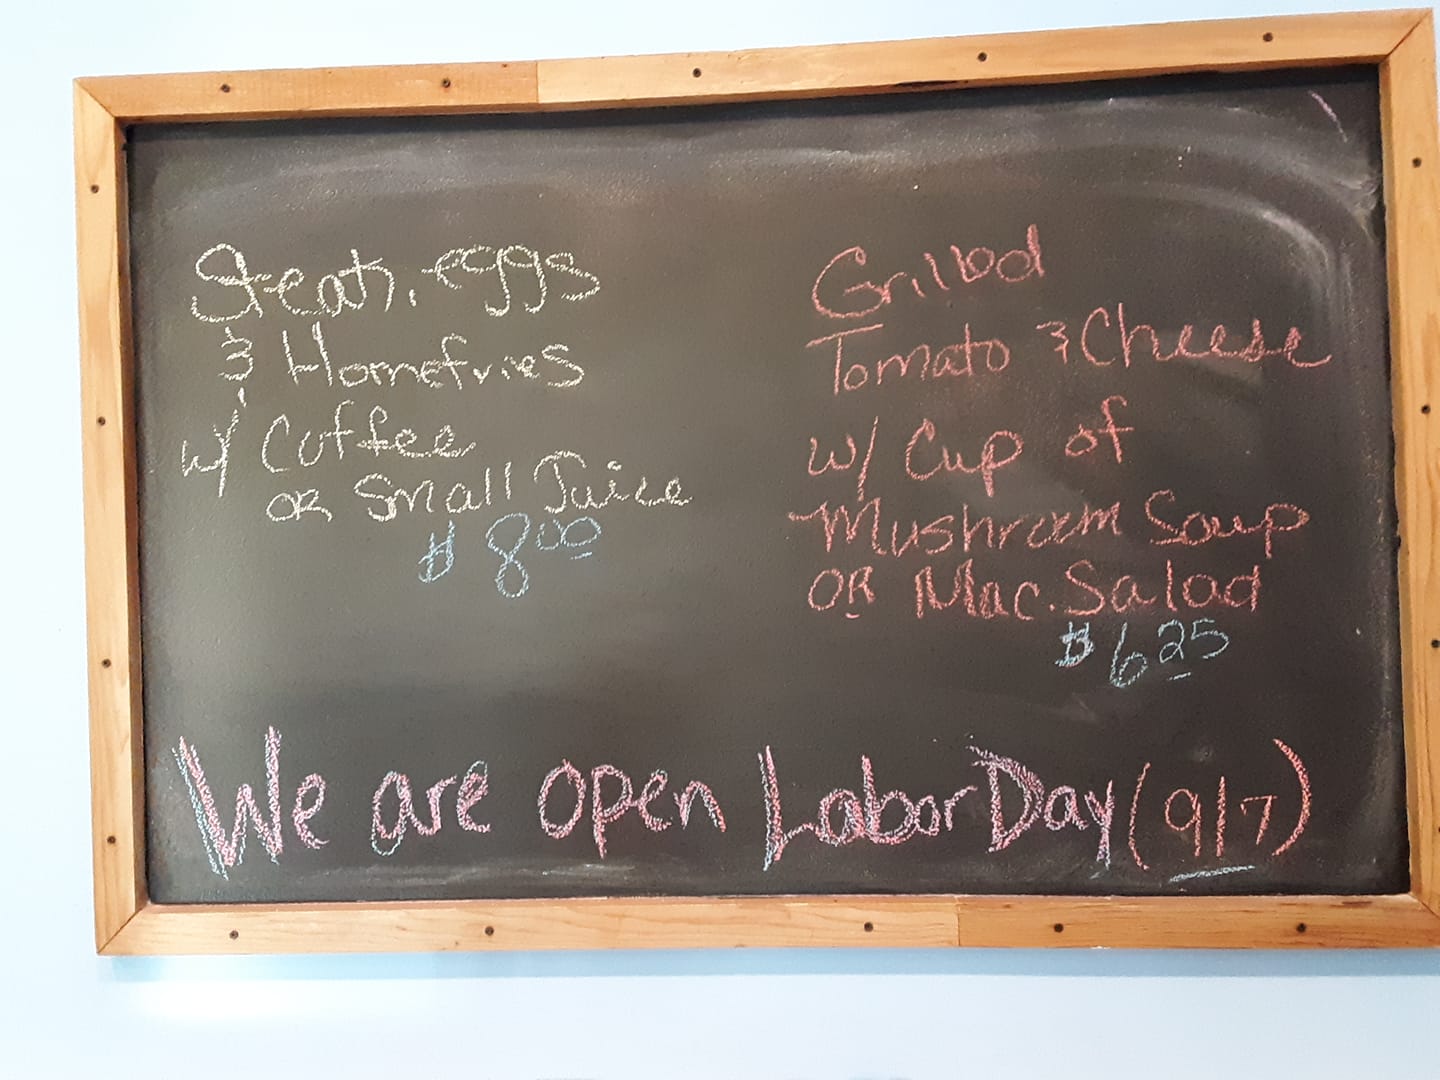 Steak, eggs
& Homefries
w/ Coffee
OR Small Juice
$ 8.00
Grilled
Tomato & Cheese
w/ Cup of
Mushroom Soup
OR Mac. Salad
$ 6.25
We are open Labor Day (9/7)